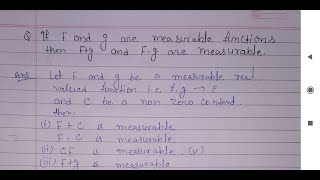 Q If F and g are measurable functions
then F+g and F-g are measurable.
Ans: Let F and g be a measurable real
valued function i.e. f, g → E
and C be a non zero
then:
(i) F + C is measurable
F - C is measurable
(ii) CF is measurable
(iii) F+g is measurable